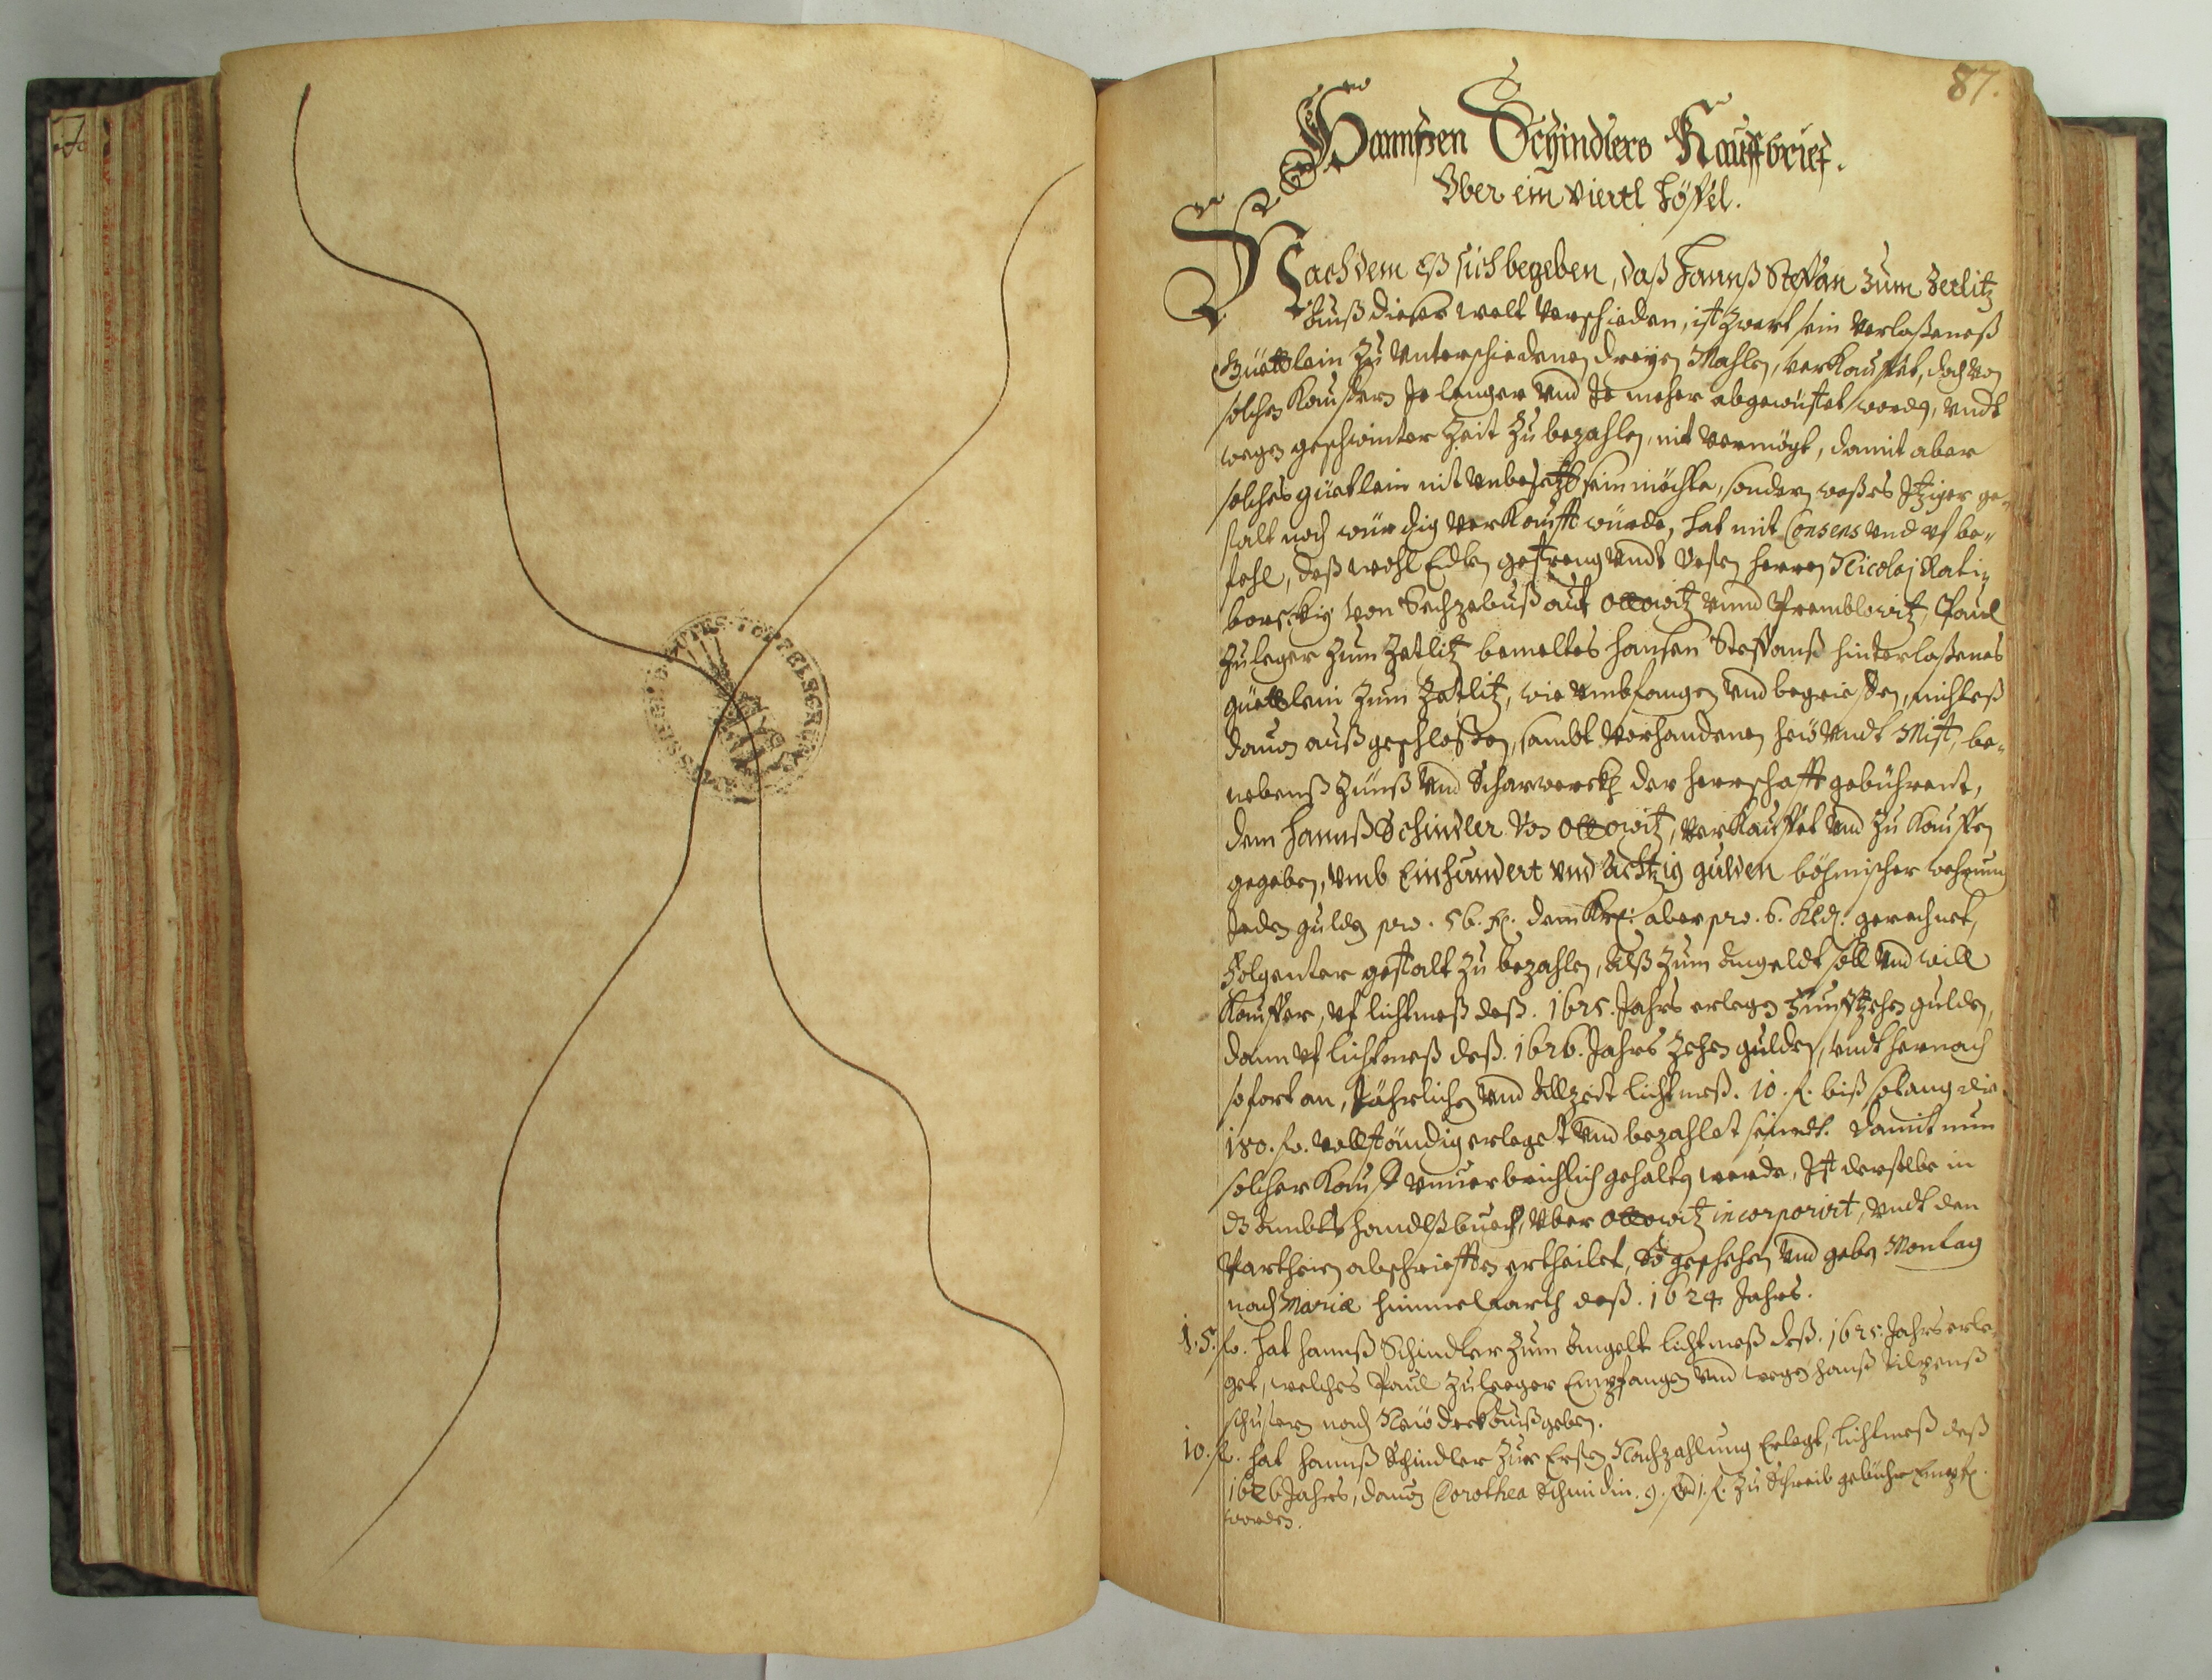 87.
Hannßen Schindlers Kauffbrief.
Vber ein Viertl Höffel.
Nachdem Eß sich begeben, daß Hannß Steffan zum Zetlitz
auß dieser welt verschieden, ist zwart sein verlaßeneß
Güettlein zu unterschiedenen dreyen Mahlen, verkauffet, doch von
solchen Kauffern Je lenger vnd Je meher abgewüstet worden, vndt
wegen geschwinter Zeit zu bezahlen, nit vermögt, damit aber
solches güetlein nit vnbesetzt sein möchte, sondern Itziger ge-
stalt noch würdig verkaufft würde, hat mit Consens vnd vf be-
fehl, deß wohl Edlen gestreng vndt Vesten herrn Nicolaj Rati-
borscky von Sechzebuß auf Ottowitz vnnd Premblowitz, Paul
Zuleger zum Zetlitz bemeltes hansen Steffanß hinderlaßenes
güettlein zum Zetlitz, wie vmbfangen vnd begrieffen, nichteß
dauon außgeschloßen, sambt vorhandenen heü vndt Mist, be-
nebenß Zünß vnd Scharwerckh der herrschafft gebührent,
dem Hannß Schindler von Ottowitz, verkauffet vnd zu kauffen
gegeben, vmb Einhundert vnd Achtzig gulden böhmischer wehrung
Jeden gulden pro. 56. kr. dem Krz: aber pro. 6. Kldn. gerechnet,
Folgenter gestalt zu bezahlen, Alß zum Angeldt soll vnd will
Kauffer, vf lichtmeß deß. 1625. Jahrs erlegen Funffzehen gulden,
dann vf lichtmeß deß. 1626. Jahrs zehen gulden, vndt hernach
so fort an, Jährlichen vnd Allzeit lichtmeß. 10. fl. biß solang die
180. fl. vollständig erleget vnd bezahlet seindt. Damit nun
solcher Kauff vnuerbrichlich gehalten werde, Ist derselbe in
dz Ambts handlßbuech, vber Ottowitz incorporirt, vndt den
Partheien abschriefften ertheilet, So geschehen vnd geben Montag
nach Mariæ himmelfarth deß. 1624. Jahrs.
15. fl. hat hannß Schindler zum Angelt lichtmeß deß. 1625. Jahrs erle-
get, welches Paul Zuleeger Empfangen vnd wegen hanß
schusters nach Neüdeck außgeben.
10. fl. hat hannß Schindler zur Ersten Nachzahlung Erlegt, lichtmeß deß
1626 Jahrs, dauon Dorothea Schmidin. 9. vnd 1. fl. zu Schreib gebühr Empf.
worden.